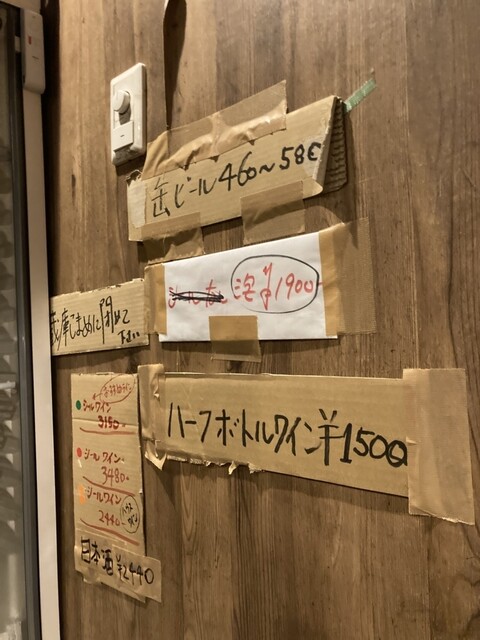 缶ビール460〜580
泡¥1900-
蔵庫こまめに閉めて
下さい
ハーフボトルワイン¥1500
シールワイン
3150-
シールワイン
3480-
シールワイン
2440-
ハウス
ワイン
日本酒¥2440